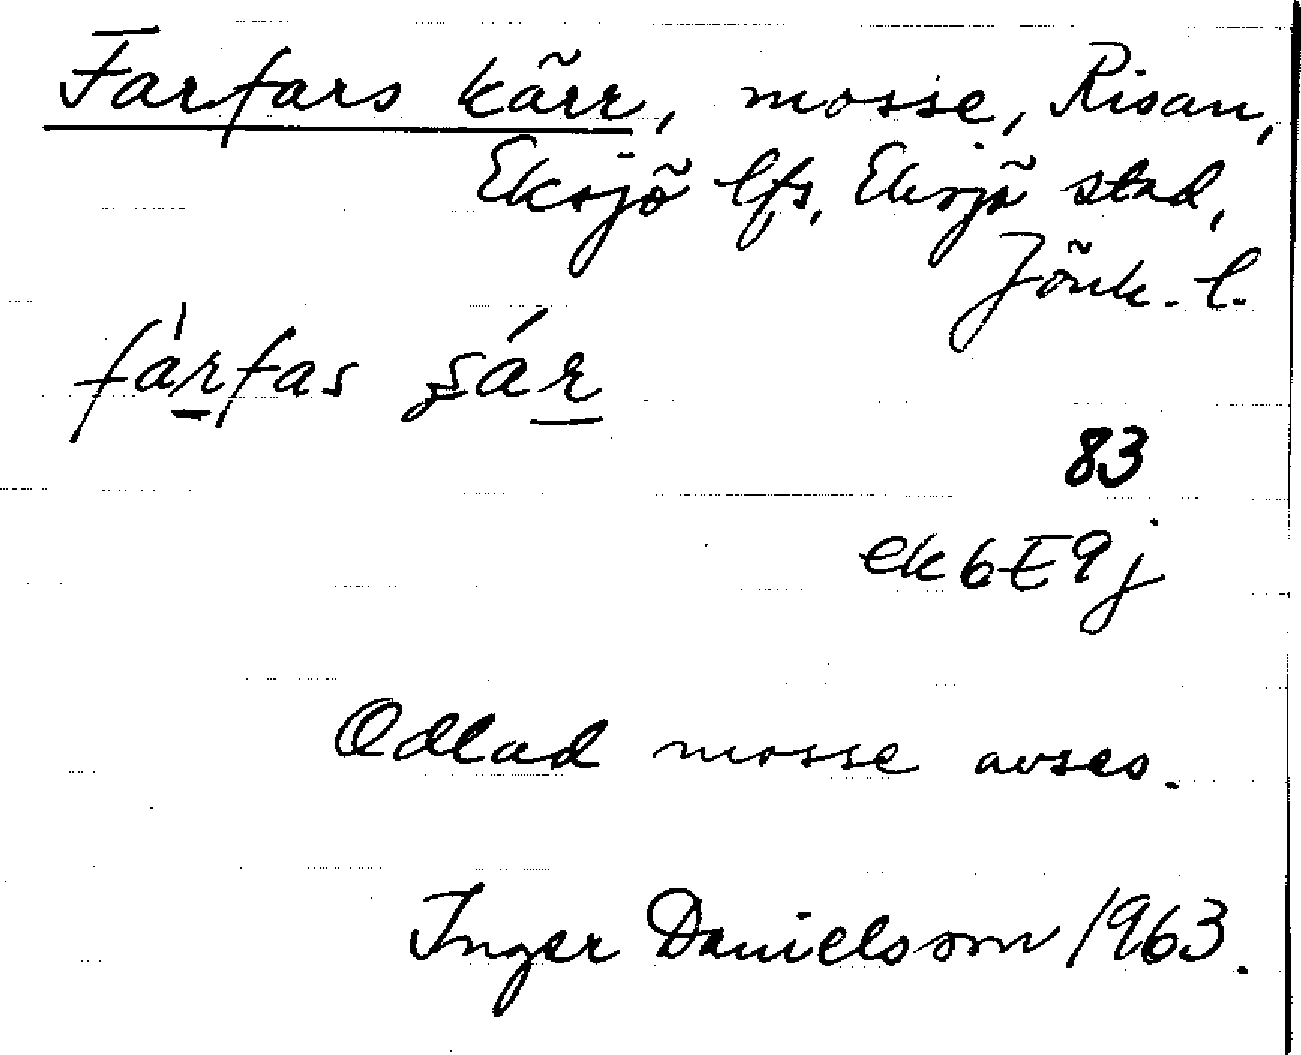 Farfars kärr, mosse, Risan,
Eksjö lfs, Eksjö stad,
Jönk. l.
fàrfas ʂár
83
ek 6E9j
Odlad mosse avses.
Inger Danielsson 1963.